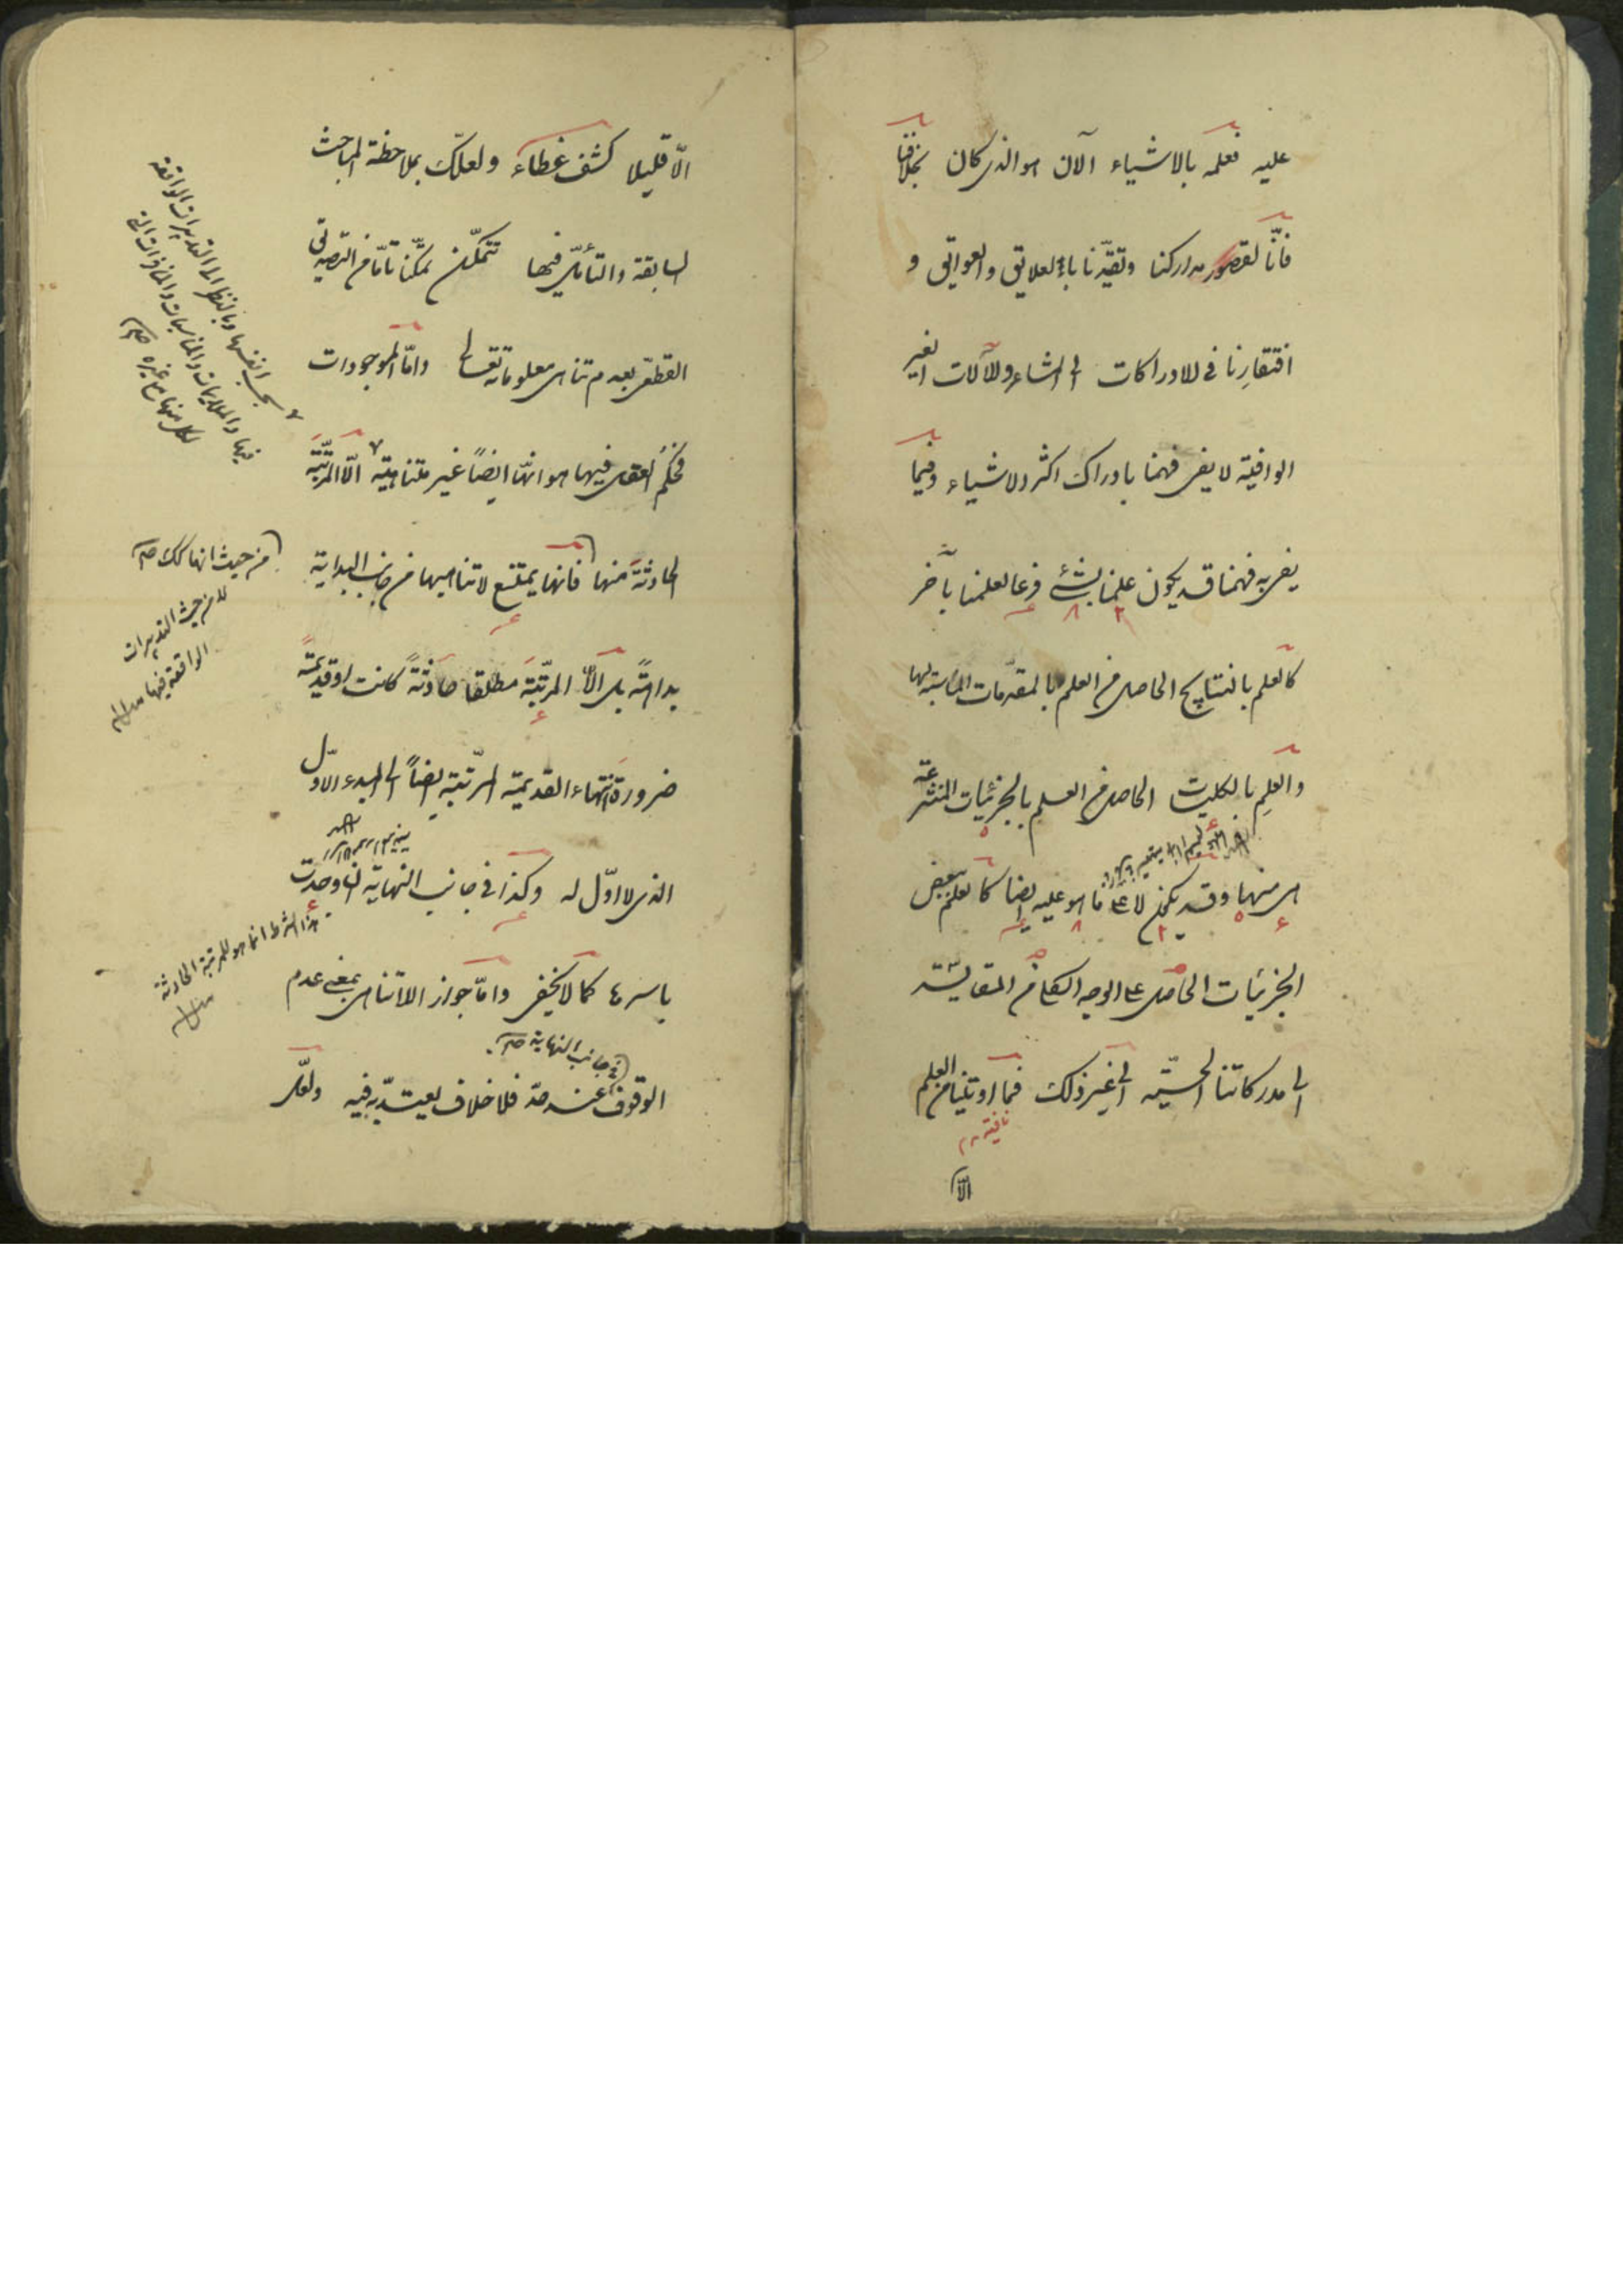 عليه فعلمه بالاشياء الآن هو الذى كان بخلافنا
فانّا لقصور مداركنا وتقيّدنا بالعلايق والعوايق و
افتقارنا فى الادراكات الى المشاعر والآلات الغير
الوافية لا يفى فهمنا بادراك اكثر الاشياء وفيما
يفى به فهمنا قد يكون علمنا بشئ فرعا لعلمنا بآخر
كالعلم بالنتايج الحاصل من العلم بالمقدّمات المناسبة لها
والعلم بالكليات الحاصل من العلم بالجزئيات المنتزعة
هى منها وقد يكون لا على ما هو عليه ايضا كالعلم ببعض
الجزئيات الحاصل على الوجه الكلى من المقايسة
الى مدركاتنا الحسّيّة الى غير ذلك فما اوتينا من العلم
الّا
الّا قليلا كشف غطاء ولعلّك بملاحظة المباحث
السابقة والتأمّل فيها تتمكّن تمكّنا تامّا من التصديق
القطعى بعدم تناهى معلوماته تعالى وامّا الموجودات
فحكم العقل فيها هو انّها ايضاً غير متناهية الّا المرتّبة
الحادثة منها فانها يمتنع لا تناهيها من جانب البداية
بداهةً بل الّا المرتّبة مطلقا حادثةً كانت او قديمةً
ضرورة انتهاء القديمة المرتّبة ايضاً الى المبدء الاوّل
الذى لا اوّل له وكذا فى جانب النهاية ان وجدت
باسرها كما لا يخفى وامّا جواز اللاتناهى بمعنى عدم
الوقوف عند حدّ فلا خلاف يعتدّ به فيه ولعلّ
بحسب انفسها وبالنظر الى التقديرات الواقعة
من حيث انها كك صح
لا من حيث التقديرات
الواقعة فيها
هذا الشرط انما هو للمرتبة الحادثة
فى جانب النهاية صح